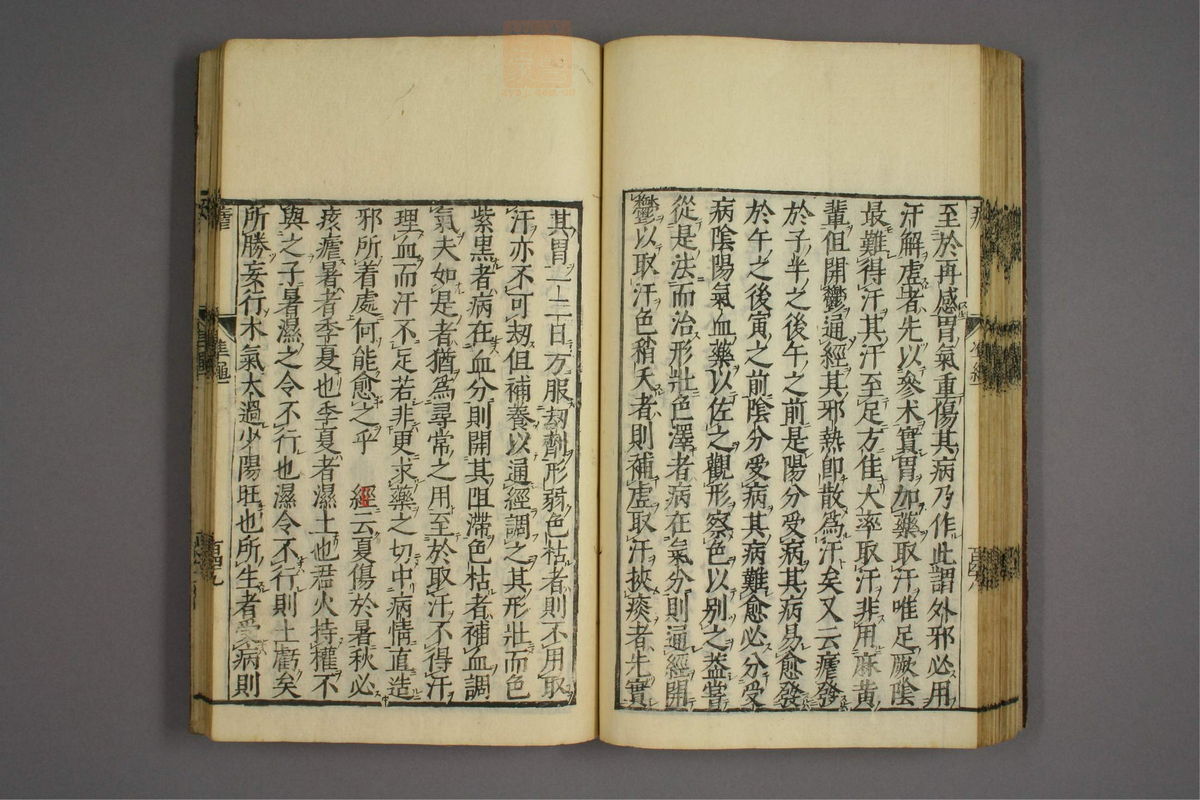 至於再感胃氣重傷其病乃作此謂外邪必用
汗解虛者先以參术實胃加藥取汗唯足厥陰
最難得汗其汗至足方佳大率取汗非用麻黃
輩但開鬱通經其邪熱即散爲汗矣又云瘧發
於子半之後午之前是陽分受病其病易愈發
於午之後寅之前陰分受病其病難愈必分受
病陰陽氣血藥以佐之觀形察色以別之蓋嘗
從是法而治形壯色澤者病在氣分則通經開
鬱以取汗色稍夭者則補虛取汗挾痰者先實
其胃一二日方服刼劑形弱色枯者則不用取
汗亦不可刼但補養以通經調之其形壯而色
紫黑者病在血分則開其阻滯色枯者補血調
氣夫如是者猶爲尋常之用至於取汗不得汗
理血而汗不足若非更求藥之切中病情直造
邪所着處何能愈之乎 經云夏傷於暑秋必
痎瘧暑者季夏也季夏者濕土也君火持權不
與之子暑濕之令不行也濕令不行則土虧矣
所勝妄行木氣太過少陽旺也所生者受病則